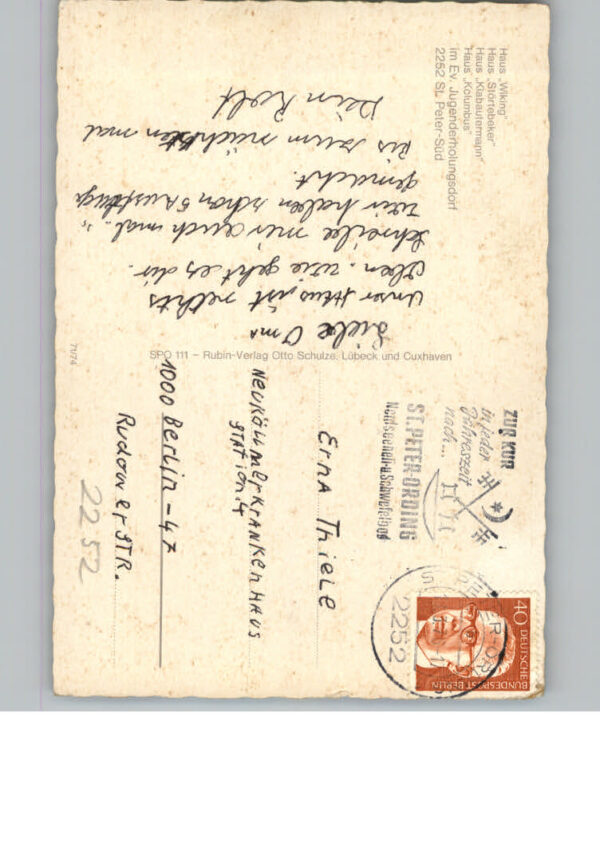 Haus „Wiking"
Haus „Störtebeker"
Haus „Klabautermann"
Haus „Kolumbus"
im Ev. Jugenderholungsdorf
2252 St. Peter-Süd
Liebe Oma
Unser Haus ist rechts
Oben. Wie geht es dir.
Schreibe mir auch mal.
Wir haben schon 5 Ausflüge
gemacht.
Bis zum nächsten mal
Dein Rolf
SPO 111 – Rubin-Verlag Otto Schulze, Lübeck und Cuxhaven
71/74
ZUR KUR
in jeder
Jahreszeit
nach...
ST. PETER-ORDING
Nordseeheil-u. Schwefelbad
2252
40
DEUTSCHE
BUNDESPOST BERLIN
Erna Thiele
Neuköllnerkrankenhaus
Station 4
1000 Berlin-47
Rudower STR.
2252